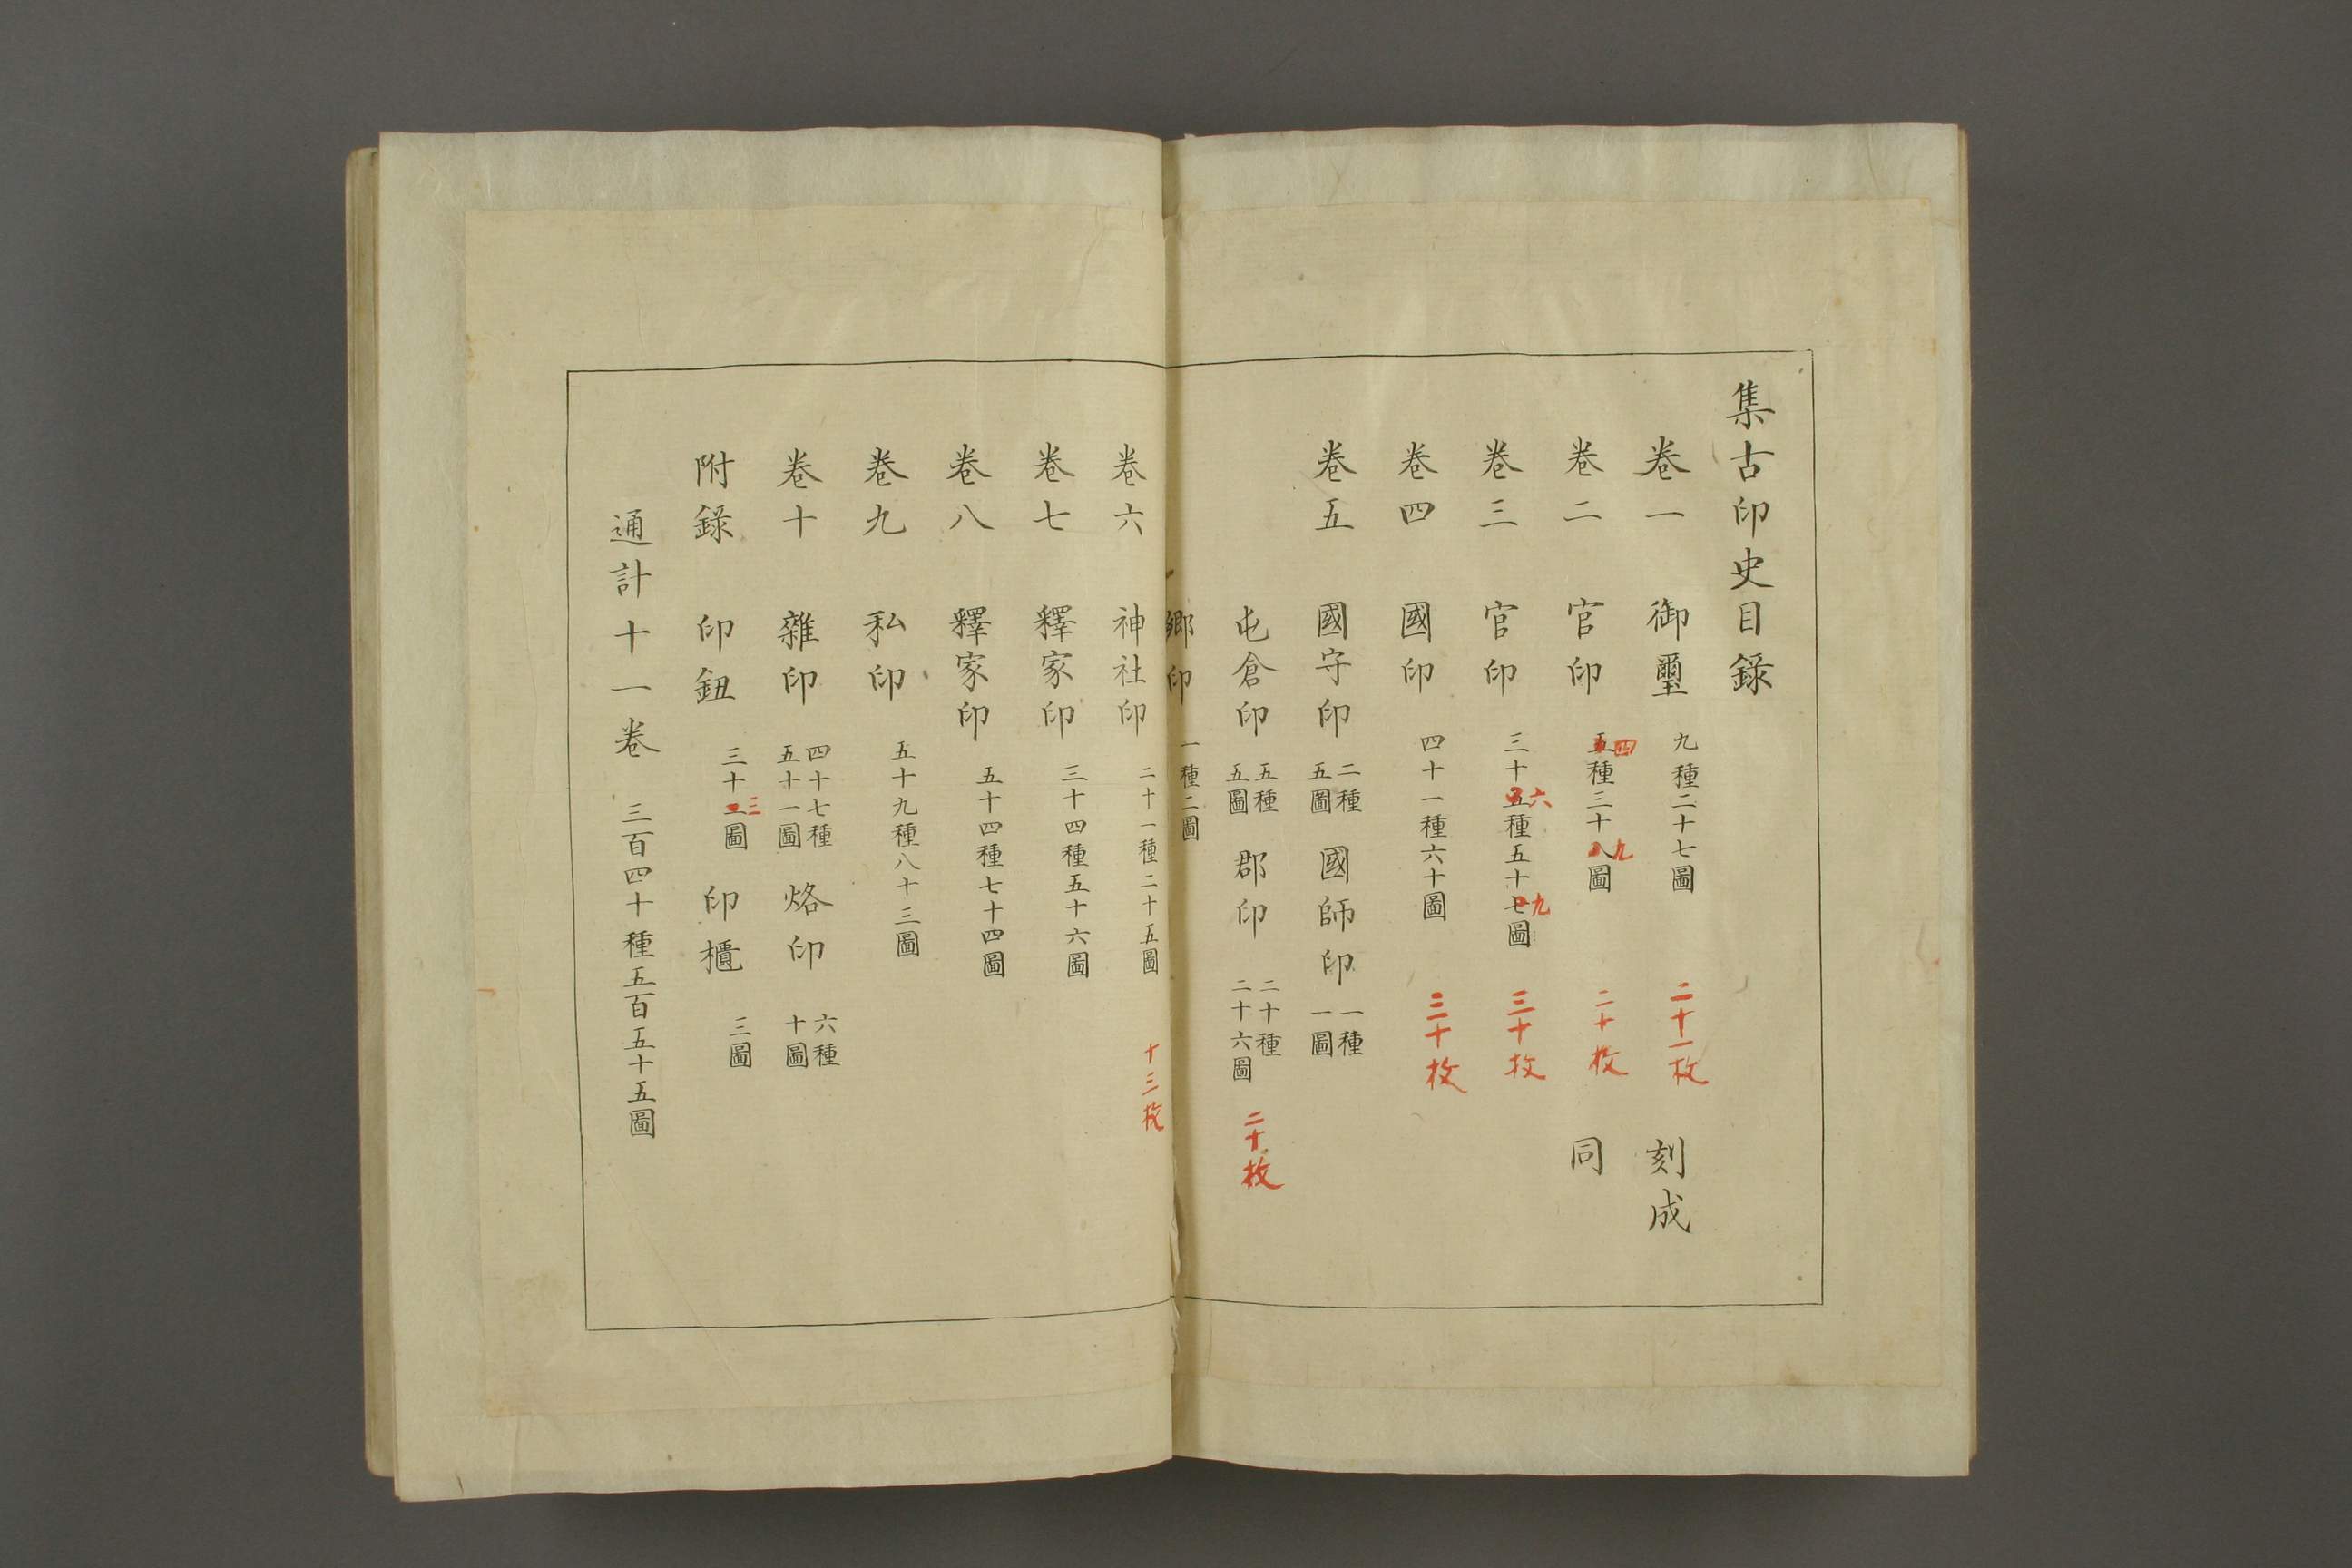 集古印史目錄
卷一 御璽 九種二十七圖 二十一枚 刻成
卷二 官印 五四種三十八九圖 二十枚 同
卷三 官印 三十五六種五十七九圖 三十枚
卷四 國印 四十一種六十圖 三十枚
卷五 國守印 二種五圖 國師印 一種一圖
屯倉印 五種五圖 郡印 二十種二十六圖 二十枚
鄉印 一種二圖
卷六 神社印 二十一種二十五圖 十三枚
卷七 釋家印 三十四種五十六圖
卷八 釋家印 五十四種七十四圖
卷九 私印 五十九種八十三圖
卷十 雜印 四十七種五十一圖 烙印 六種十圖
附錄 印鈕 三十三圖 印櫃 三圖
通計十一卷 三百四十種五百五十五圖